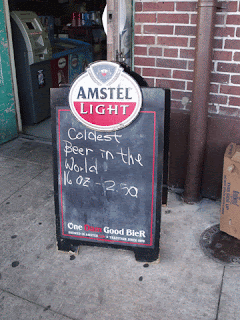 AMSTEL
LIGHT
Coldest
Beer in the
World
16 oz - 2.50
One Good BieR